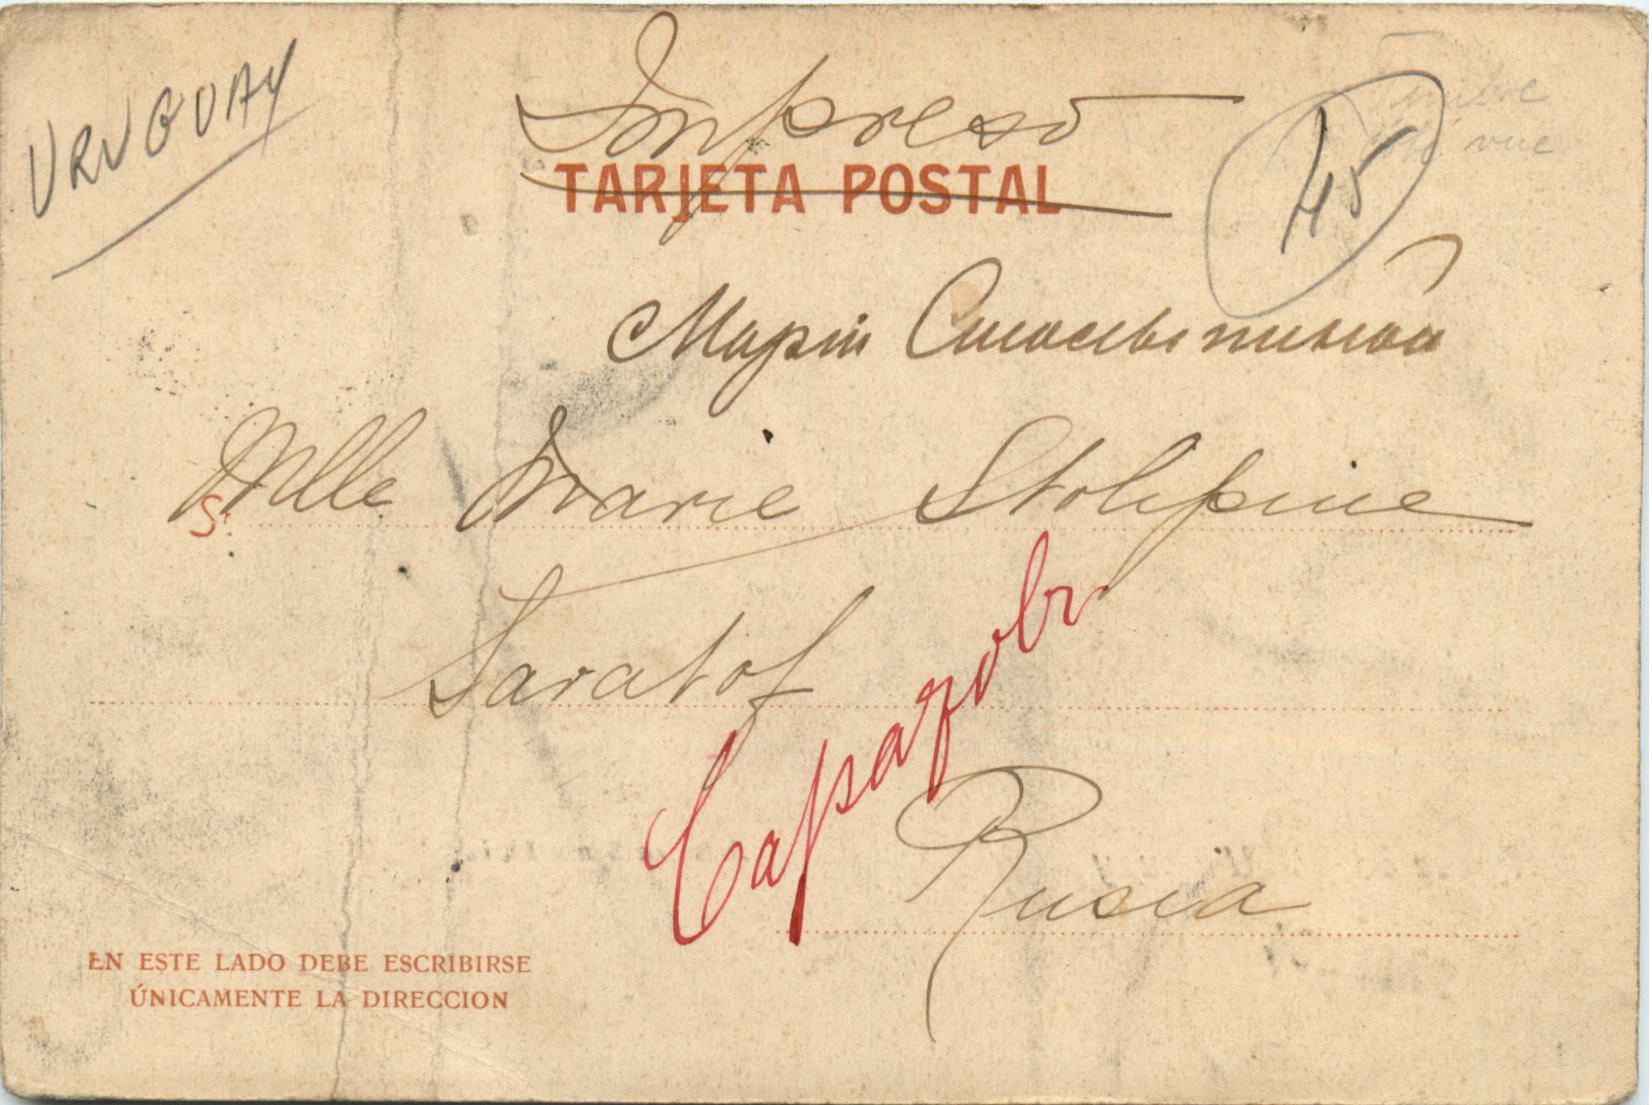 URUGUAY
Impreso
Timbre
côté vue
45
TARJETA POSTAL
Маріи Столыпиной
S.
Mlle Marie Stolipine
Saratof
Саратовъ
Rusia
EN ESTE LADO DEBE ESCRIBIRSE
ÚNICAMENTE LA DIRECCION